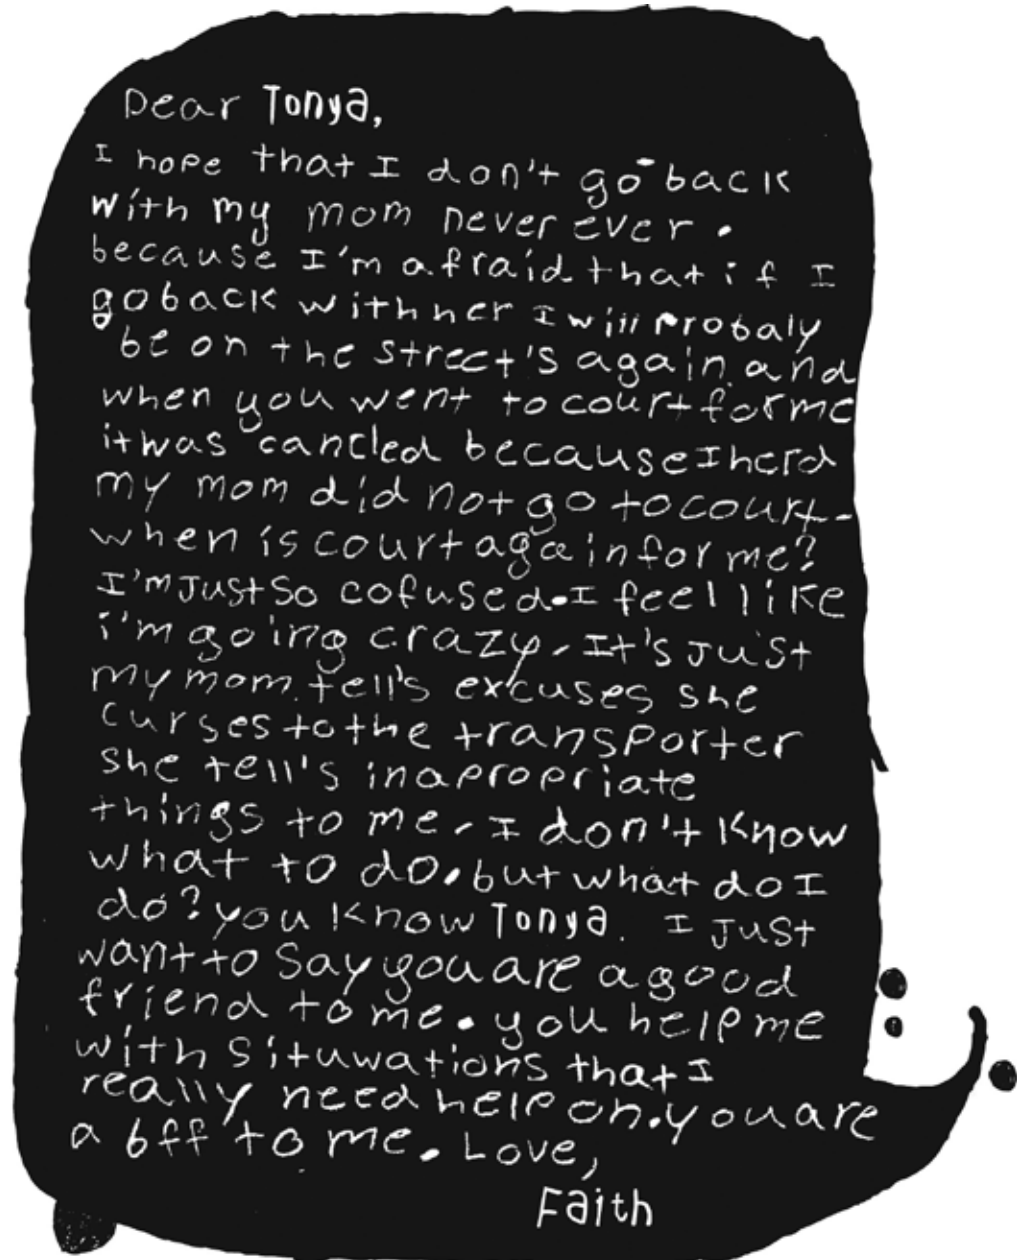 Dear Tonya,
I hope that I don't go back
with my mom never ever.
because I'm afraid that if I
go back with her I will probaly
be on the street's again and
when you went to court for me
it was cancled because I herd
my mom did not go to court.
when is court again for me?
I'm just so cofused. I feel like
i'm going crazy. It's just
my mom tell's excuses she
curses to the transporter
she tell's inapropriate
things to me. I don't know
what to do. but what do I
do? you know Tonya. I just
want to say you are a good
friend to me. you help me
with situwations that I
really need help on. you are
a bff to me. Love,
Faith